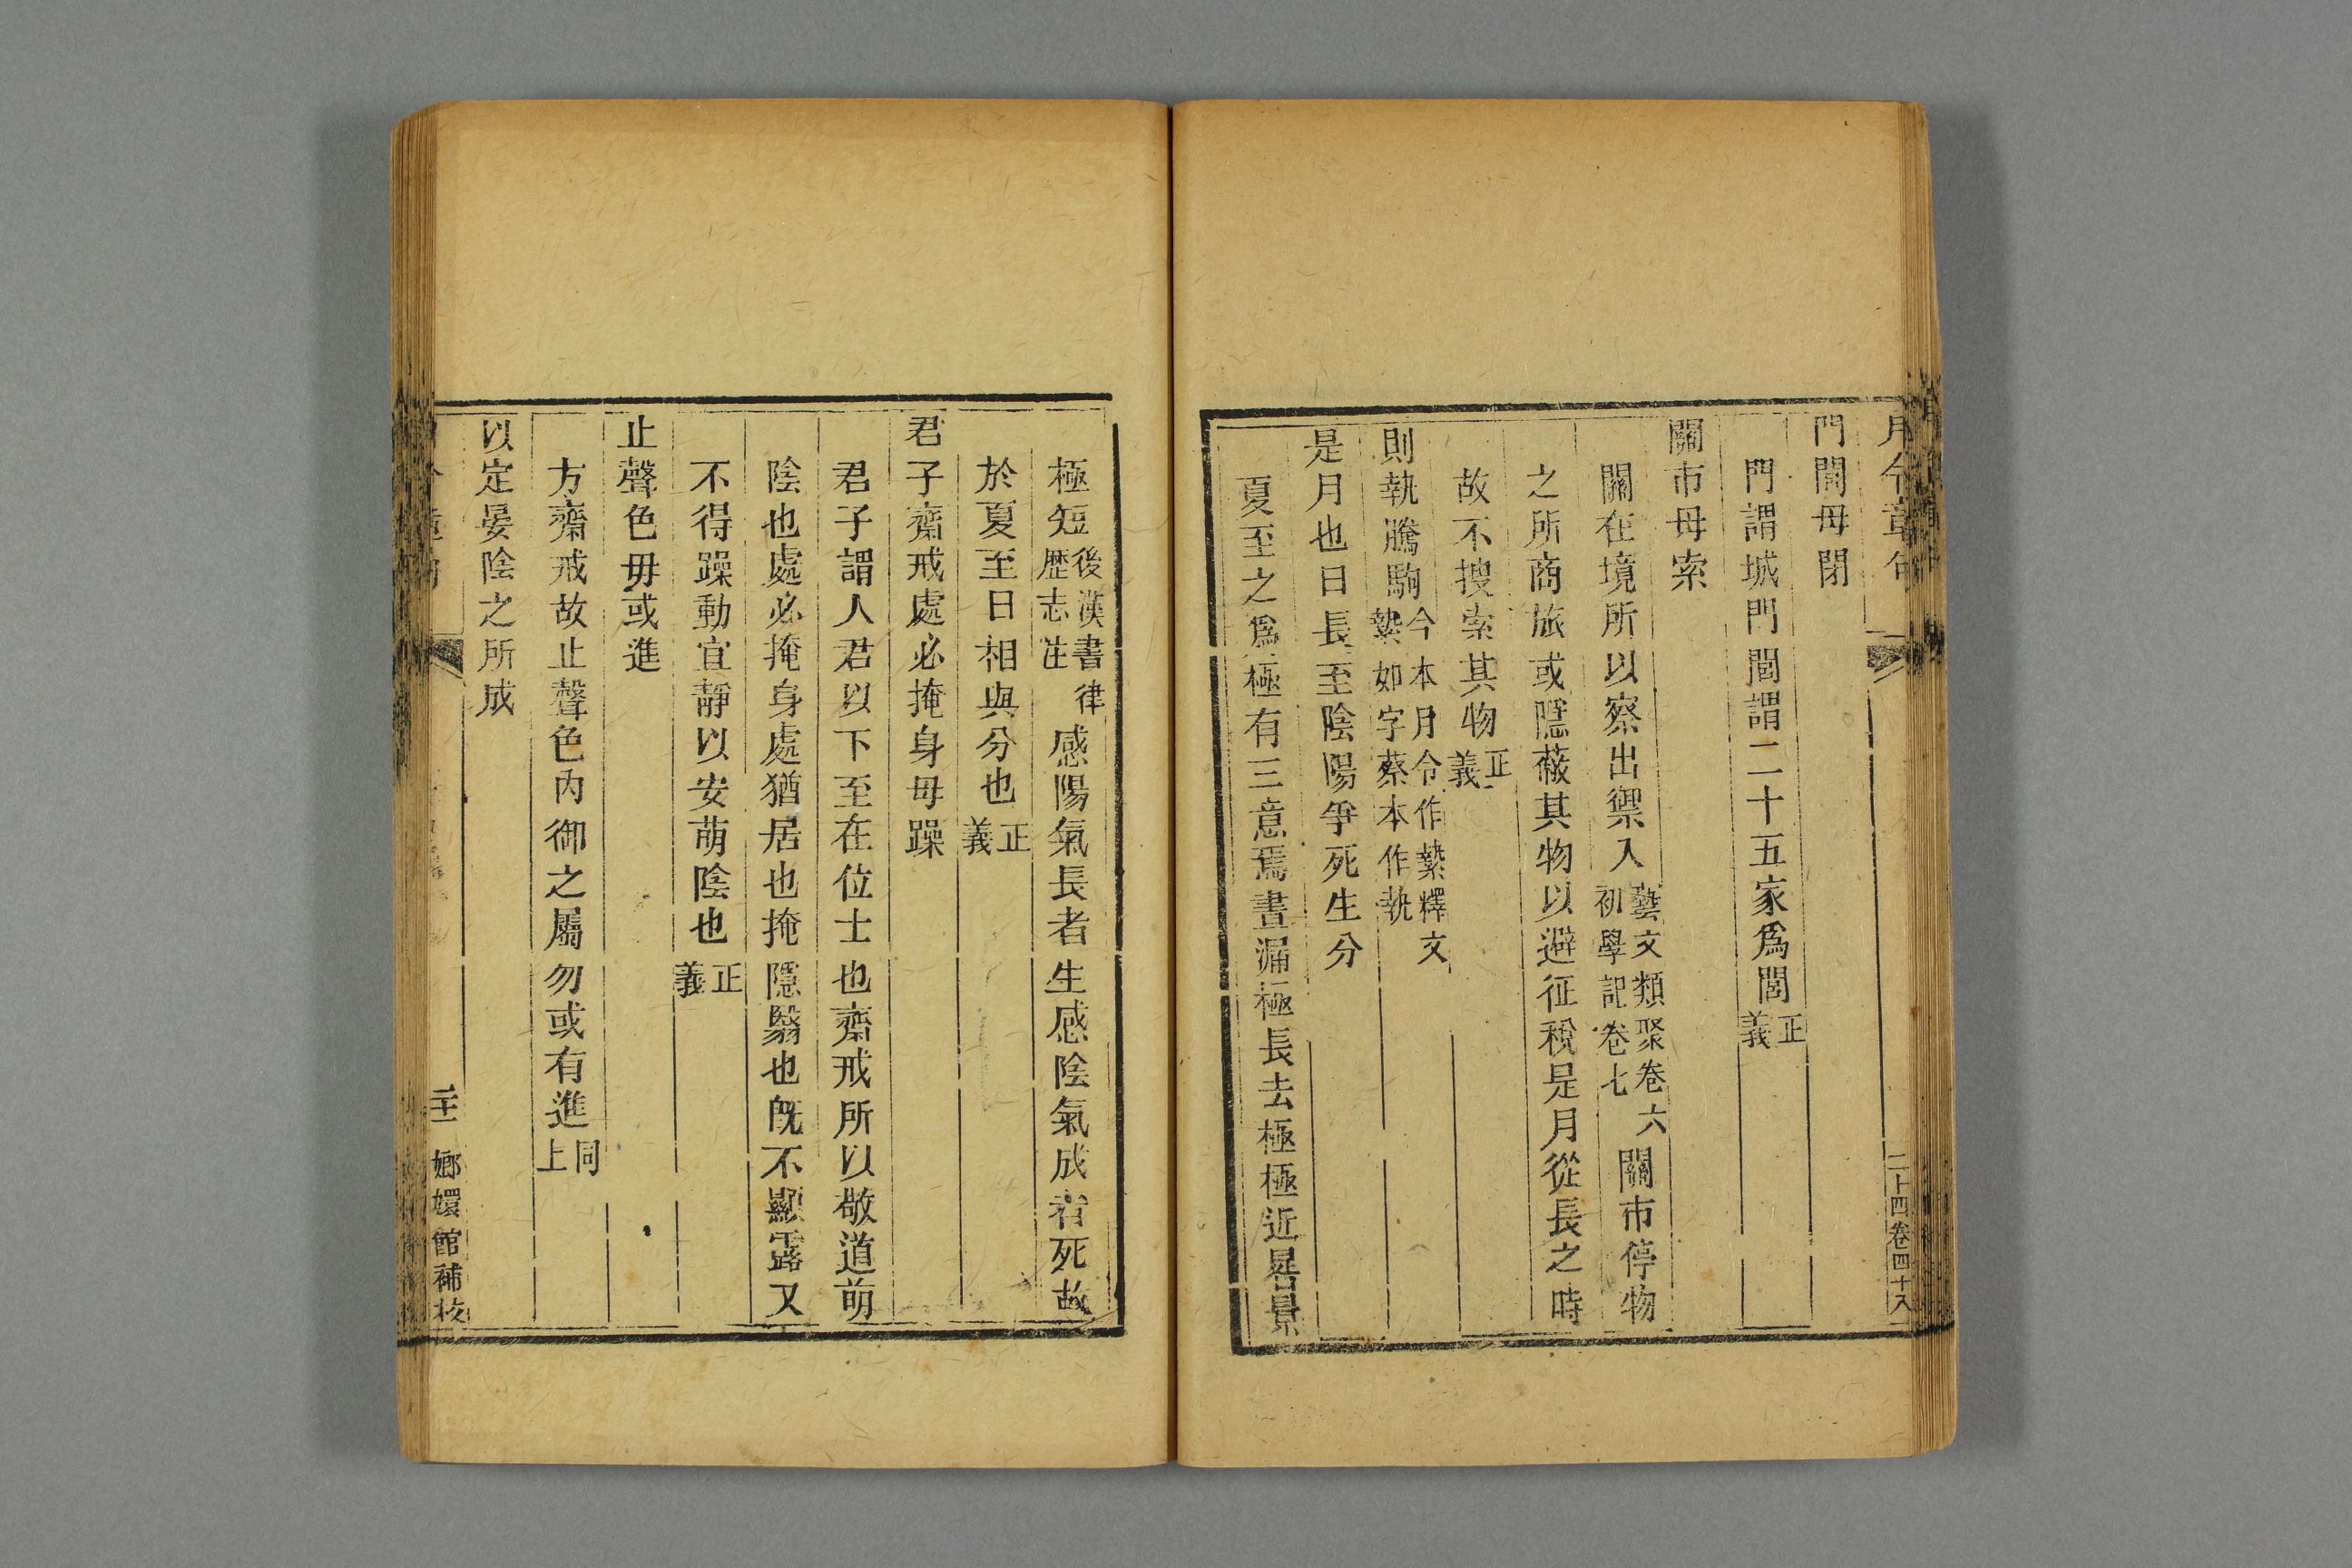 月令章句
二十四卷四十八
門閭毋閉
門謂城門閭謂二十五家爲閭正義
關市毋索
關在境所以察出禦入藝文類聚卷六初學記卷七關市停物
之所商旅或隱蔽其物以避征稅是月從長之時
故不搜索其物正義
則執騰駒今本月令作縶釋文縶如字蔡本作執
是月也日長至陰陽爭死生分
夏至之爲極有三意焉晝漏極長去極極近晷景
極短後漢書律歷志注感陽氣長者生感陰氣成者死故
於夏至日相與分也正義
君子齋戒處必掩身毋躁
君子謂人君以下至在位士也齋戒所以敬道萌
陰也處必掩身處猶居也掩隱翳也旣不顯露又
不得躁動宜靜以安萌陰也正義
止聲色毋或進
方齋戒故止聲色內御之屬勿或有進同上
以定晏陰之所成
嫏嬛館補校